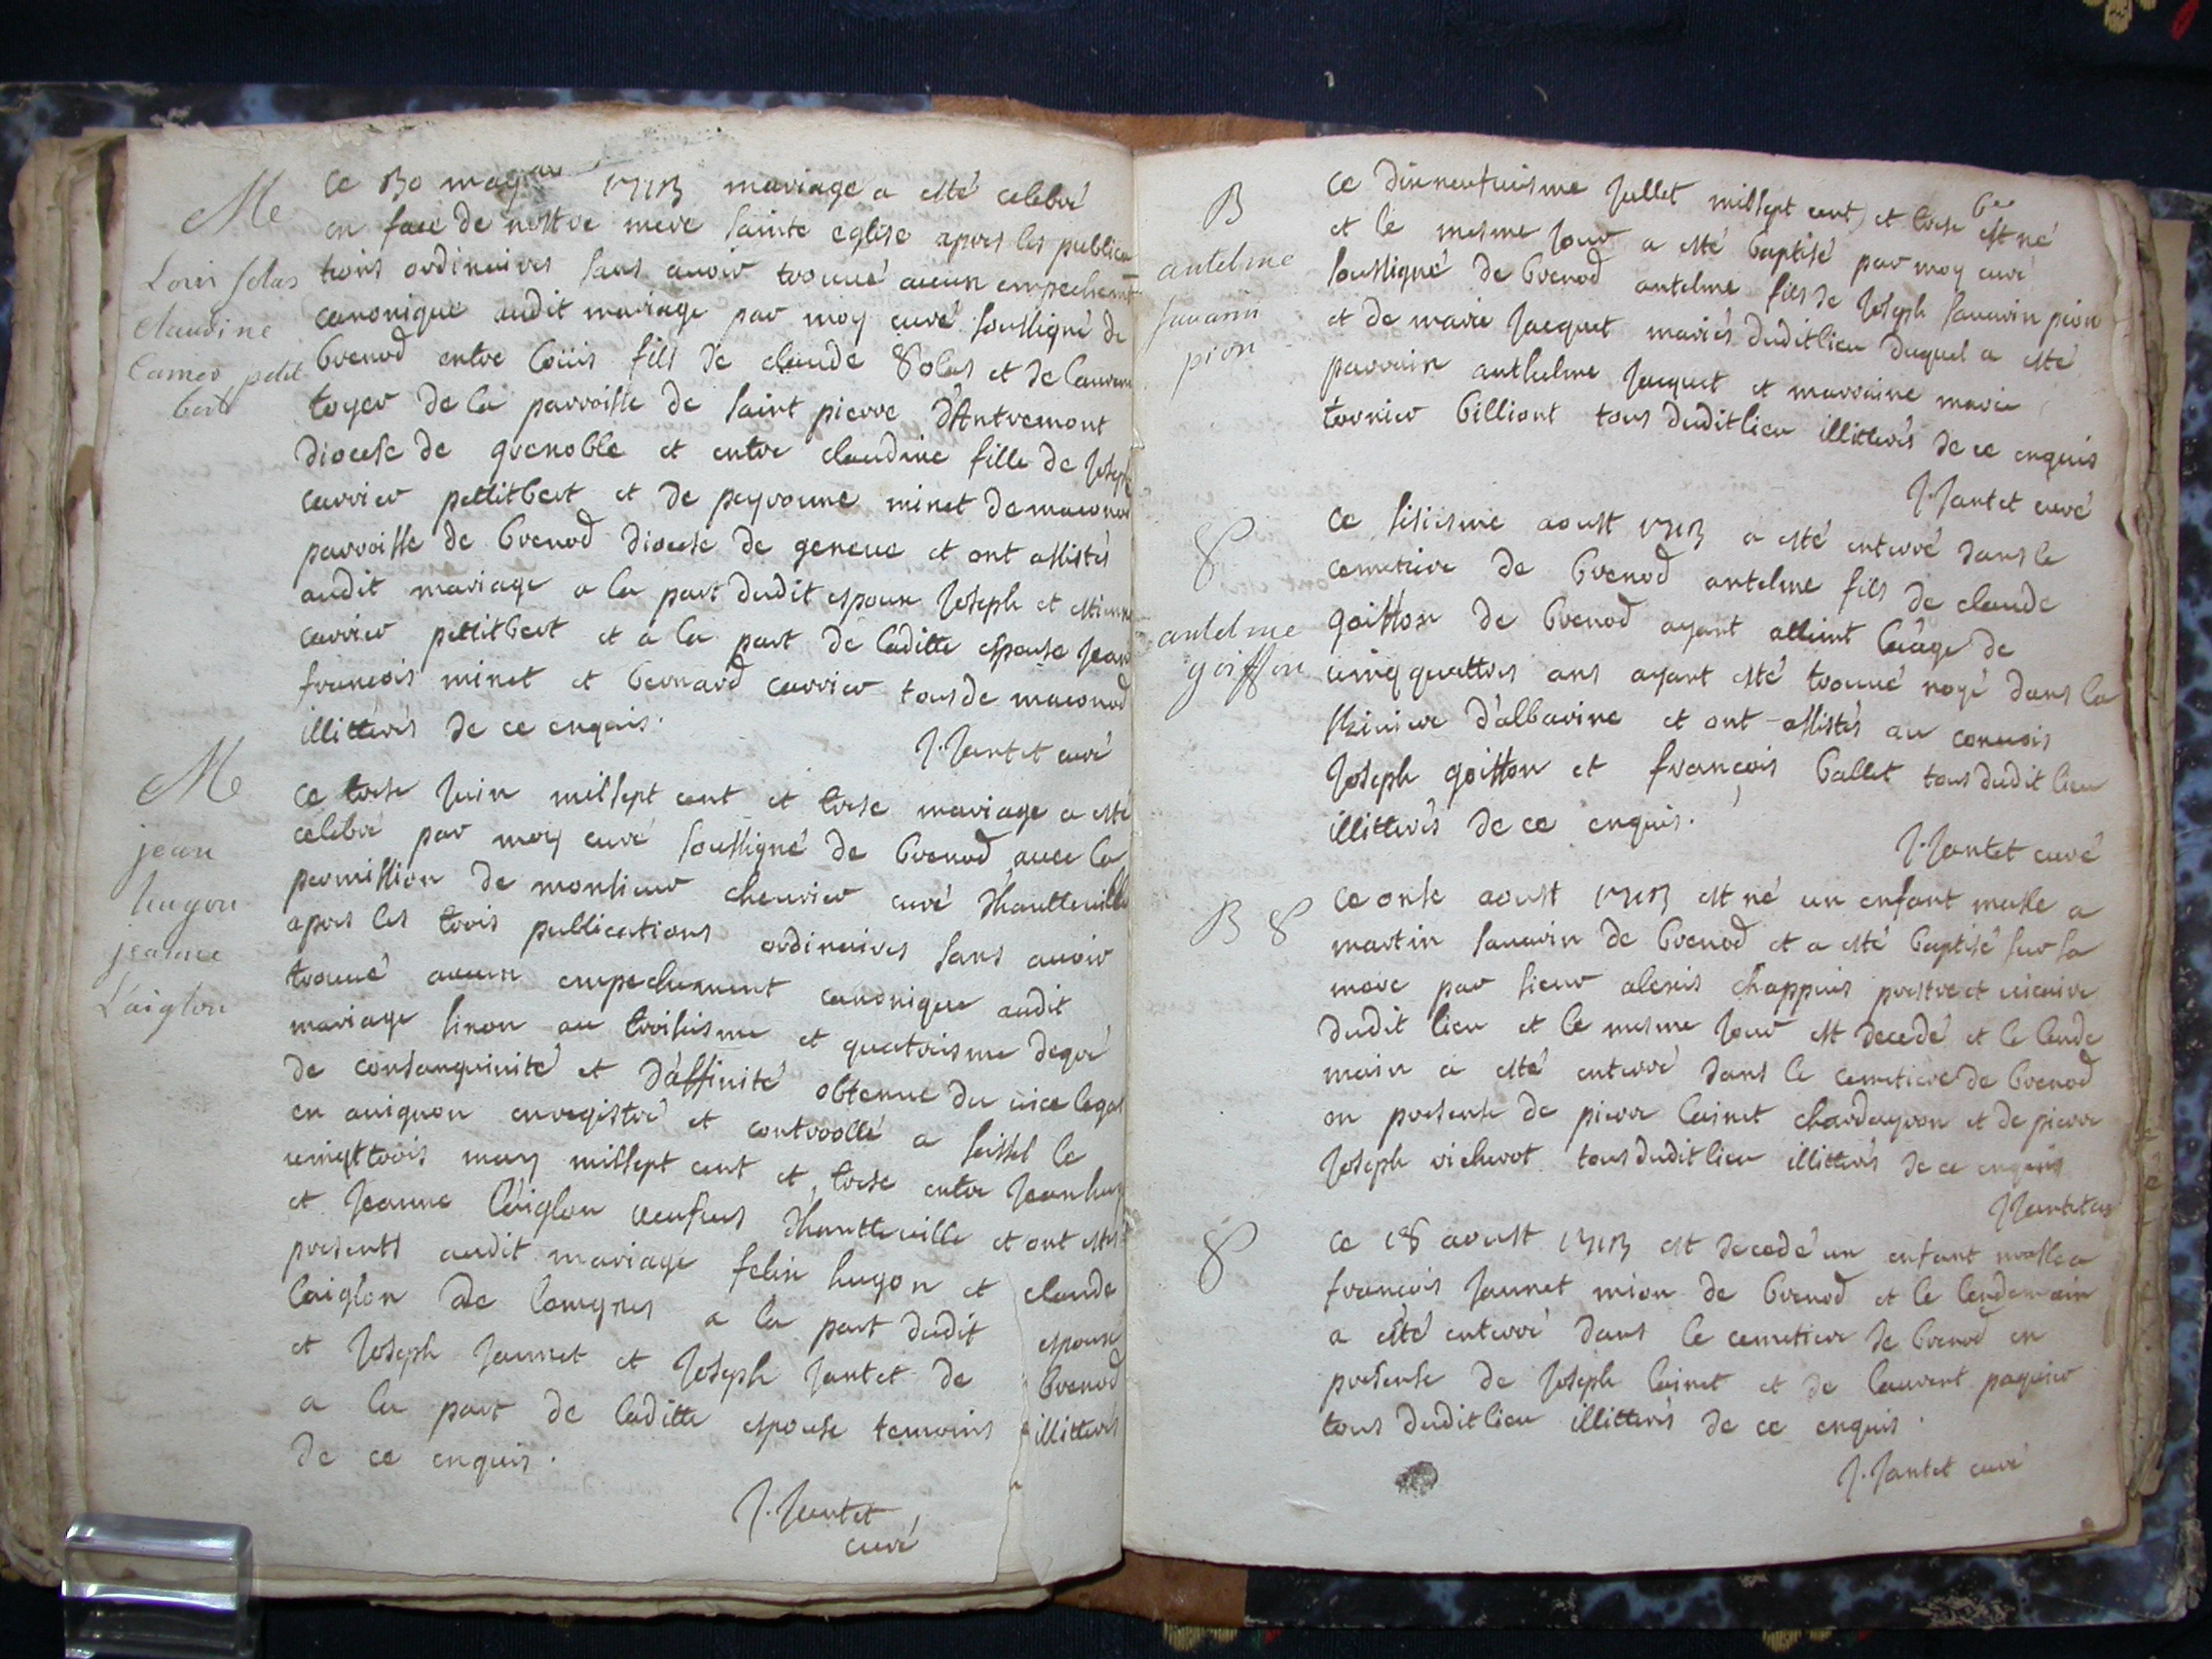 Me
Louis solas
claudine
Carrier petit
bert
Ce 30 may 1713 mariage a esté celebré
en face de nostre mere sainte eglise apres les publica
tions ordinaires sans avoir trouué aucun empechemt
canonique audit mariage par moy curé soussigné de
brenod entre loüis fils de claude Solas et de laurence
toyer de la parroisse de saint pierre d'Antremont
diocese de grenoble et entre claudine fille de Joseph
carrier pettitbert et de peyronne minet de maconod
parroisse de brenod diocese de geneue et ont assistés
audit mariage a la part dudit espoux Joseph et estienne
carrier pettitbert et a la part de laditte espouse Jean
francois minet et bernard carrier tous de maconod
illitterés de ce enquis.
J. Jantet curé
M
jean
hugon
jeanne
L'aiglon
Ce trese Juin mil sept cent et trese mariage a esté
celebré par moy curé soussigné de brenod auec la
permission de monsieur cheurier curé d'hautteuille
apres les trois publications ordinaires sans auoir
trouué aucun empechement canonique audit
mariage sinon au troisiesme et quatriesme degré
de consanguinité et d'affinité obtenue du uice legat
en auignon enregistré et controollé a seissel le
uingttrois may mil sept cent et trese entre Jean hugon
et Jeanne l'aiglon ueufues d'hautteuille et ont estes
presents audit mariage felix hugon et claude
laiglon de longnes a la part dudit espoux
et Joseph Jannet et Joseph Jantet de brenod
a la part de laditte espouse temoins illitterés
de ce enquis.
J. Jantet
curé
B
antelme
sauarin
pion
ce dixneufuiesme Jullet mil sept cent et trese est né
et le mesme Jour a esté baptisé par moy curé
soussigné de brenod antelme fils de Joseph sauarin pion
et de marie Jacquet mariés dudit lieu duquel a esté
parrain anthelme Jacquet et marraine marie
tornier billiont tous dudit lieu illitterés de ce enquis
J. Jantet curé
S
antelme
goiffon
ce sisiesme aoust 1713 a esté enterré dans le
cemetiere de brenod antelme fils de claude
goiffon de brenod ayant attient l'aage de
uingt quattres ans ayant esté trouué noyé dans la
riuiere d'albarine et ont assistés au conuois
Joseph goiffon et françois ballet tous dudit lieu
illitterés de ce enquis.
J. Jantet curé
B S
Ce onse aoust 1713 est né un enfant masle a
martin sauarin de brenod et a esté baptisé sur sa
mere par sieur alexis chappuis prestre et uicaire
dudit lieu et le mesme Jour est decedé et le lende
main a esté enterré dans le cemetiere de brenod
en presense de pierre lainet chardeyron et de pierre
Joseph richerot tous dudit lieu illitterés de ce enquis
J Jantet cu
S
ce 18 aoust 1713 est decedé un enfant masle a
françois Jannet mion de brenod et le lendemain
a esté enterré dans le cemetiere de brenod en
presense de Joseph lainet et de laurent paquier
tous dudit lieu illitterés de ce enquis.
J. Jantet curé